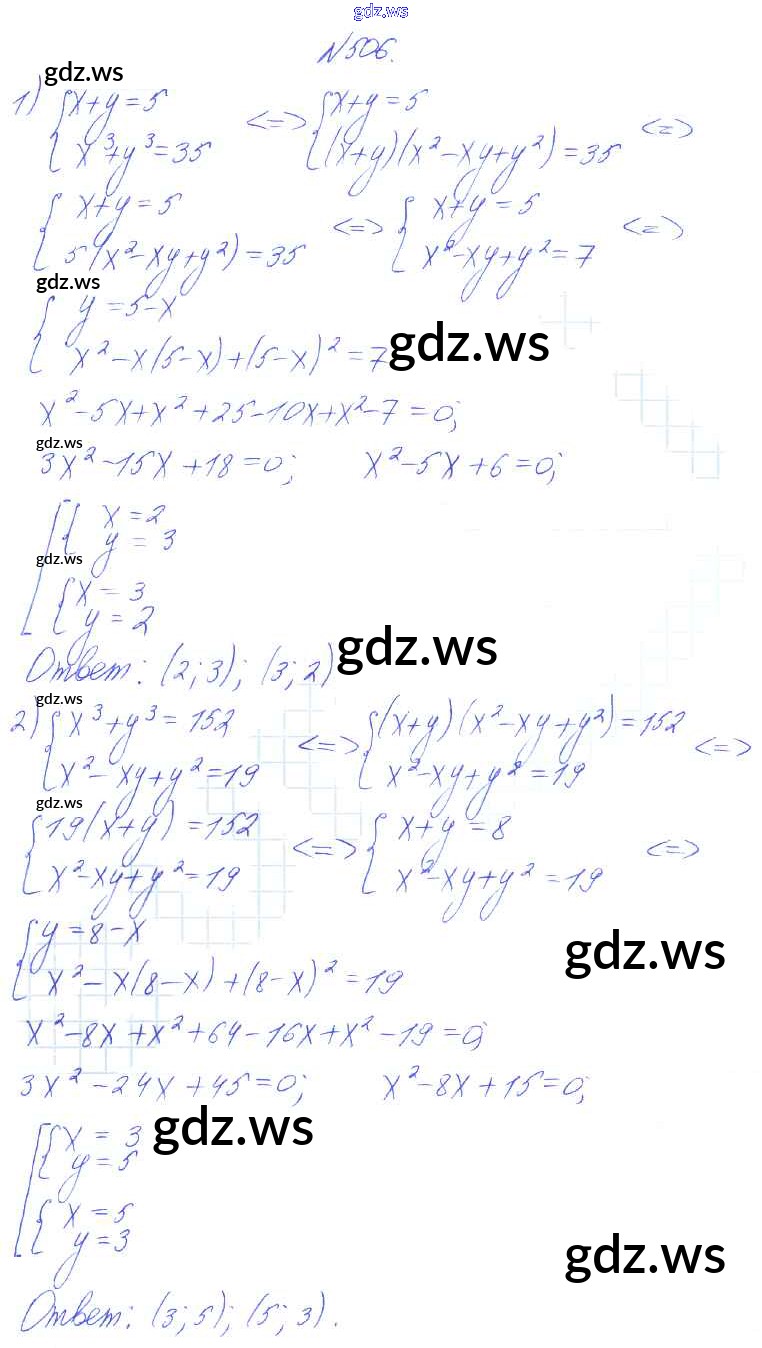 gdz.ws
N506.
gdz.ws
1) {x+y=5 <=> {x+y=5 <=>
{x³+y³=35 {(x+y)(x²-xy+y²)=35
{x+y=5 <=> {x+y=5 <=>
{5(x²-xy+y²)=35 {x²-xy+y²=7
gdz.ws
{y=5-x
{x²-x(5-x)+(5-x)²=7 gdz.ws
x²-5x+x²+25-10x+x²-7=0;
gdz.ws
3x²-15x+18=0; x²-5x+6=0;
[{x=2
{y=3
gdz.ws
{x=3
{y=2
Ответ: (2;3); (3;2) gdz.ws
gdz.ws
2) {x³+y³=152 <=> {(x+y)(x²-xy+y²)=152 <=>
{x²-xy+y²=19 {x²-xy+y²=19
gdz.ws
{19(x+y)=152 <=> {x+y=8 <=>
{x²-xy+y²=19 {x²-xy+y²=19
{y=8-x gdz.ws
{x²-x(8-x)+(8-x)²=19
x²-8x+x²+64-16x+x²-19=0;
3x²-24x+45=0; x²-8x+15=0;
gdz.ws
[{x=3
{y=5
{x=5
{y=3 gdz.ws
Ответ: (3;5); (5;3).